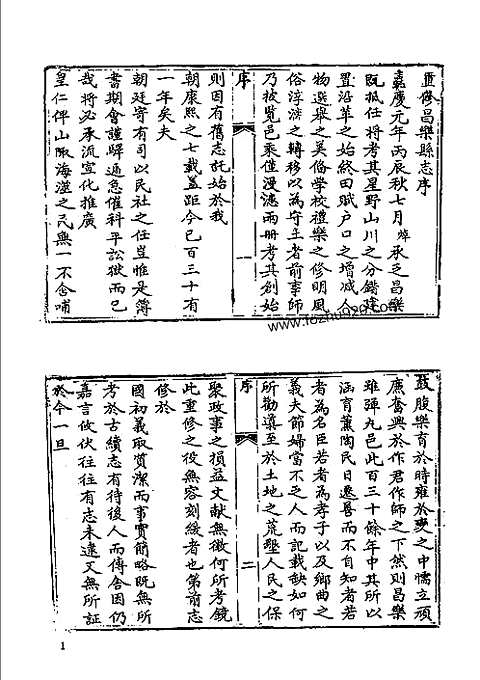 重修昌樂縣志序
嘉慶元年丙辰秋七月焯承乏昌樂
既抵任將考其星野山川之分錯建
置沿革之始終田賦戶口之增减人
物選舉之美備學校禮樂之修明風
俗淳漓之轉移以為守土者前事師
乃披覽邑乘僅漫漶兩册考其創始
序
一
則因有舊志託始於我
朝康熙之七載蓋距今已百三十有
一年矣夫
朝廷寄有司以民社之任豈惟是簿
書期會謹嚴逋急催科平訟獄而已
哉將必承流宣化推廣
皇仁俾山陬海澨之民無一不含哺
鼓腹樂育於時雍於變之中懦立頑
廉奮興於作君作師之下然則昌樂
雖彈丸邑此百三十餘年中其所以
涵育薰陶民日遷善而不自知者若
者為名臣若者為孝子以及鄉曲之
義夫節婦當不乏人而記載缺如何
所勸奬至於土地之荒墾人民之保
序
二
聚政事之損益文獻無徵何所考鏡
此重修之役無容刻緩者也第前志
修於
國初義取質潔而事實簡略既無所
考於古續志有待後人而傳舍因仍
嘉言攸伏往往有志未逮又無所証
於今一旦
1
www.fozhu920.com